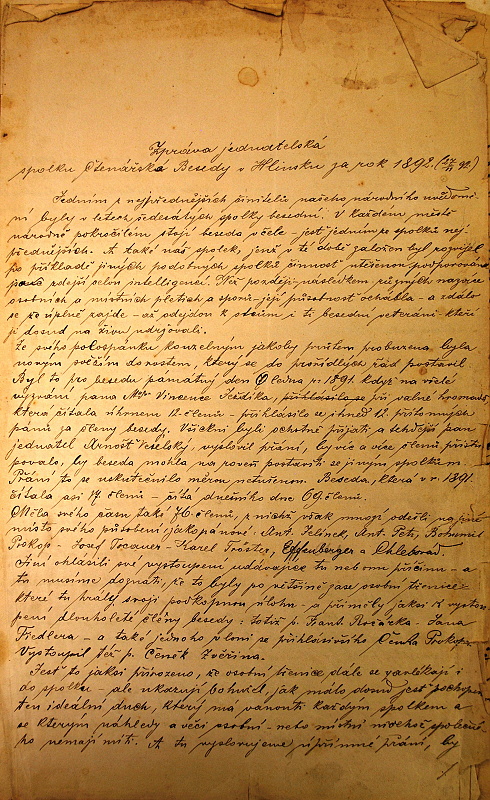 Zpráva jednatelská
spolku Čtenářská Beseda v Hlinsku za rok 1892.
Jedním z nejpřednějších činitelů našeho národního uvědomě-
ní byly v letech šedesátých spolky besední. V každém městě
národně pokročilém stojí beseda v čele – jest jedním ze spolků nej-
přednějších. A také náš spolek, jenž v té době založen byl rozvíjel
po příkladě jiných podobných spolků činnost utěšenou podporována
jsouc zdejší celou inteligencí. Než později následkem různých názorů
osobních a místních pletich a sporů – její působnost ochábla – a zdálo
se že úplně zajde – až odejdou k otcům i ti besední veteráni – kteří
ji dosud na živu udržovali.
Ze svého polospánku kouzelným jakoby prutem probuzena byla
novým svěžím dorostem, který se do prořídlých řad postavil.
Byl to pro besedu památný den ledna r. 1891 když na vřelé
vyzvání pana Vincence přihlásilo se při valné hromadě
která čítala úhrnem 12 členů – přihlásilo se ihned 12 přítomných
pánů za členy besedy. Všickni byli ochotně přijati a tehdejší pan
jednatel Arnošt Veselský, vyslovil přání, by více a více členů přistu-
povalo, by beseda mohla na roveň postaviti se jiným spolkům.
Přání to se uskutečnilo měrou netušenou. Beseda, která v r. 1891.
čítala asi 17 členů – čítá dnešního dne 69 členů.
Měla svého času také 76 členů, z nichž však mnozí odešli na jiné
místo svého působení jako pánové: Ant. Jelínek, Ant. Petr, Bohumil
Prokop – Josef – Karel Tröster, Effenberger a Chleborád
Jiní ohlásili své vystoupení uddávajíce tu neb onu příčinu – a
tu musíme doznati, že to byly po většině zase osobní třenice –
které tu hrály svoji podkopnou úlohu – a přiměly jaksi k vystou-
pení dlouholeté členy besedy: totiž p. Frant. – Jana
Fiedlera – a také jednoho vloni se přihlásivšího Čeňka Prokopa
Vystoupil též p. Čeněk Zvěřina.
Jest to jaksi přirozeno, že osobní třenice dále se zavlékají i
do spolku – ale ukazují bohužel, jak málo dosud jest pochopen
ten ideální duch, který má vanouti každým spolkem a
se kterým náhledy a věci osobní – neto místní nic společné-
ho nemají míti. A tu vyslovujeme upřímné přání, by